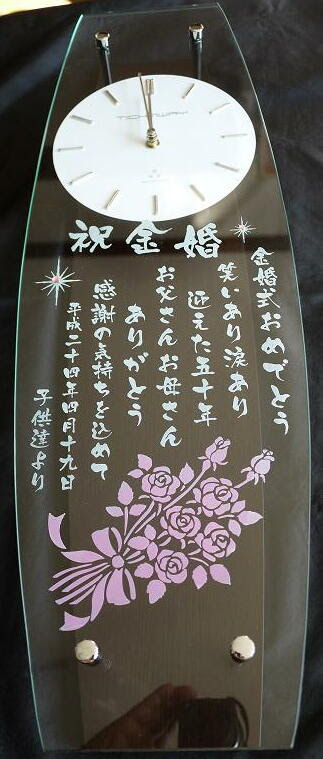 祝金婚
金婚式おめでとう
笑いあり涙あり
迎えた五十年
お父さんお母さん
ありがとう
感謝の気持ちを込めて
平成二十四年四月十九日
子供達より